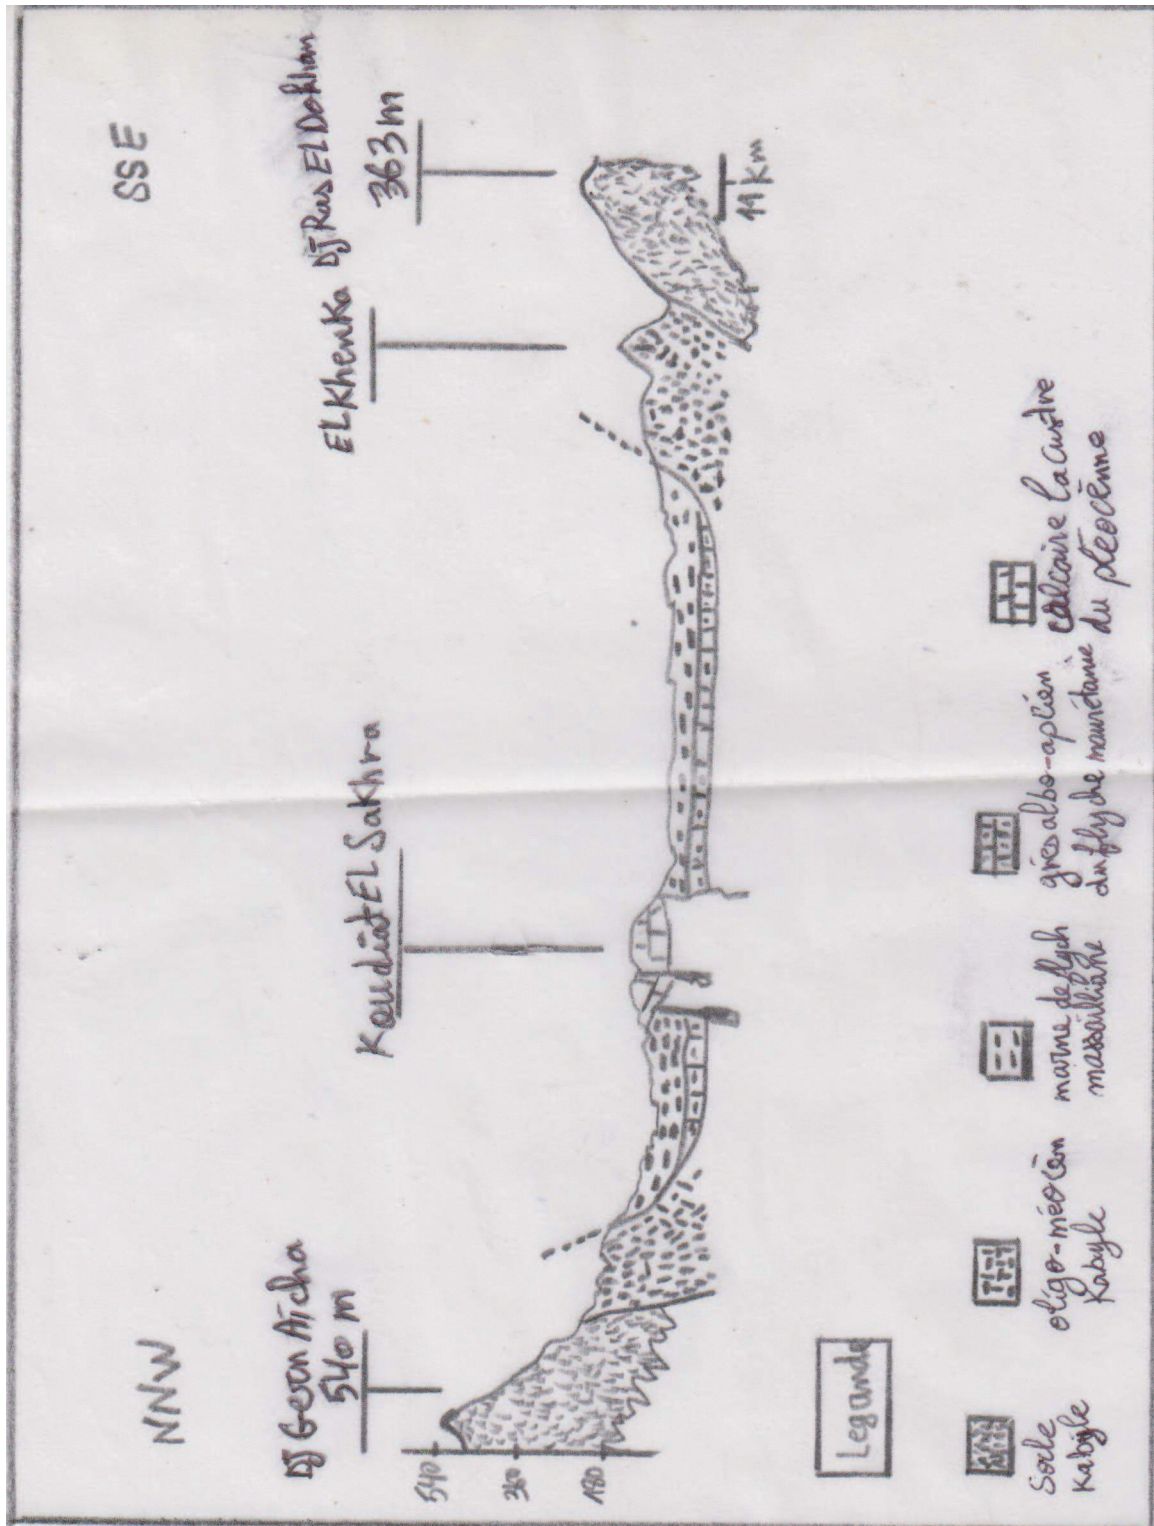 NNW
SSE
DJ Gern Aicha
540 m
Koudiat EL Sakhra
EL Khenka
DJ Ras EL Dokhan
363 m
540
360
180
11 Km
Legande
Socle
Kabyle
oligo-méocèn
Kabyle
marne de flych
massailliane
grés albo-aptien
du flyche maurétanie
calcaire lacustre
du pléocènne